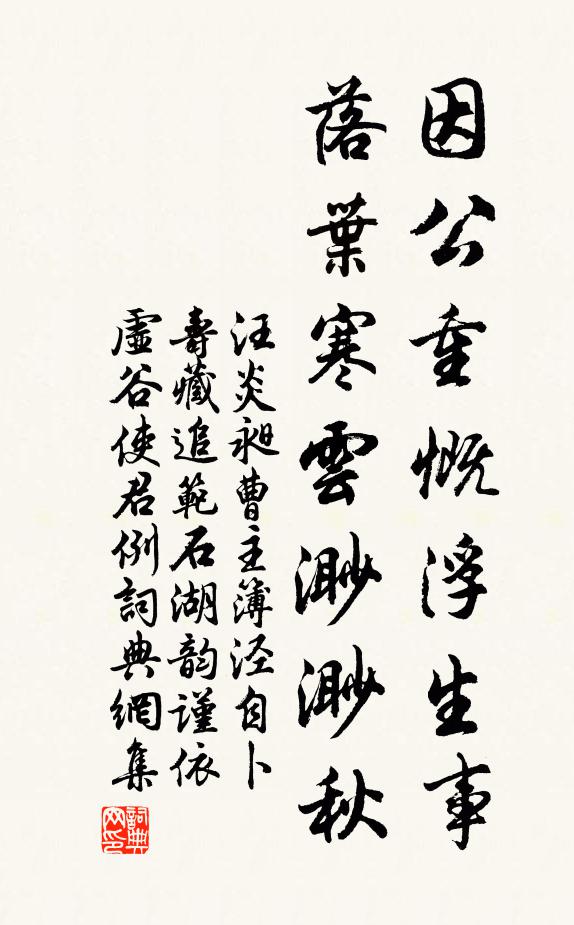 因公重慨浮生事
落葉寒雲渺渺秋
汪炎昶曹主簿泾自卜
壽藏追範石湖韵謹依
虛谷使君例詞典網集
詞典网印